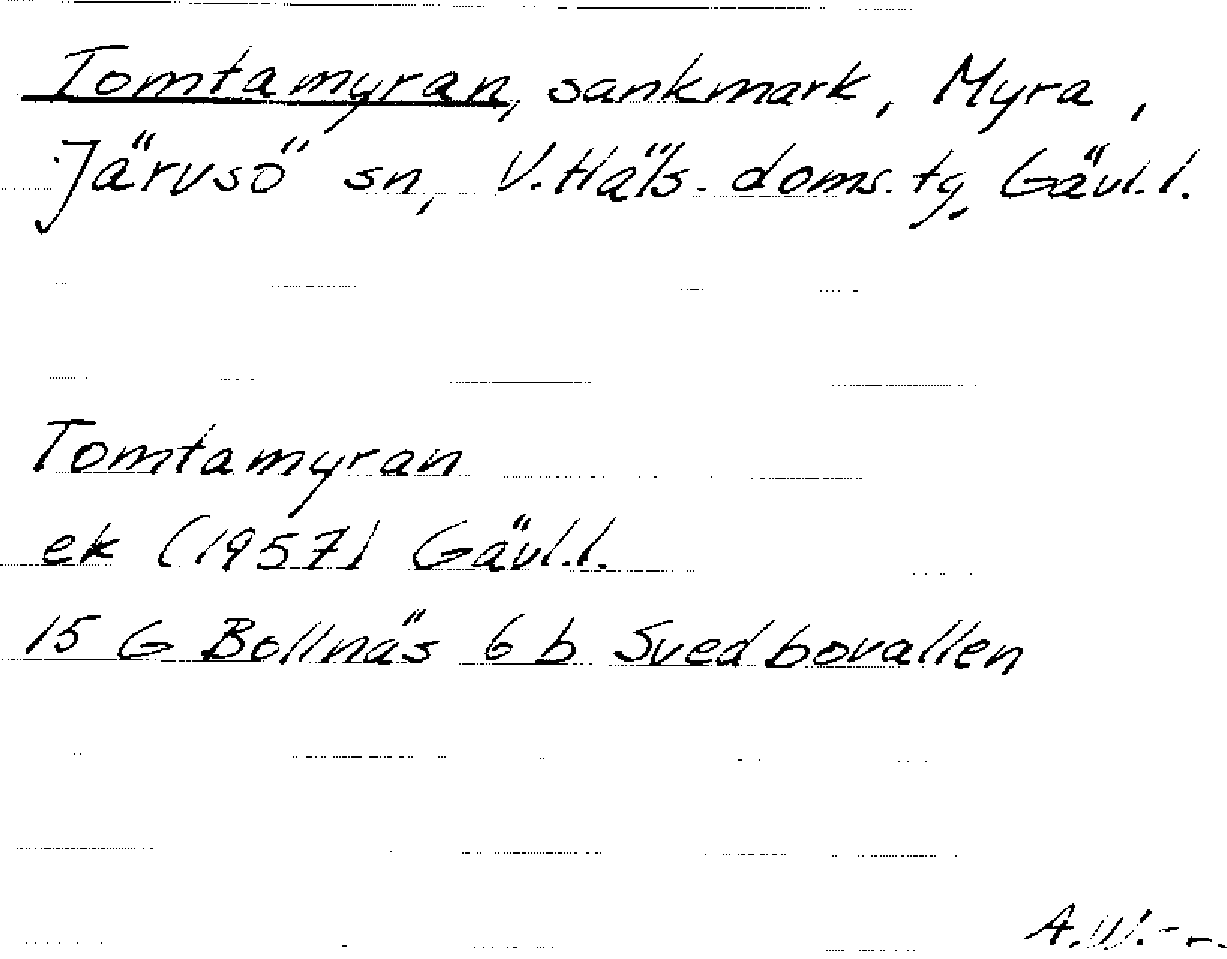 Tomtamyran, sankmark, Myra,
Järvsö sn, V.Häls. doms. tg. Gävl.l.
Tomtamyran
ek (1957) Gävl.l.
15 G Bollnäs 6 b Svedbovallen
A.W.